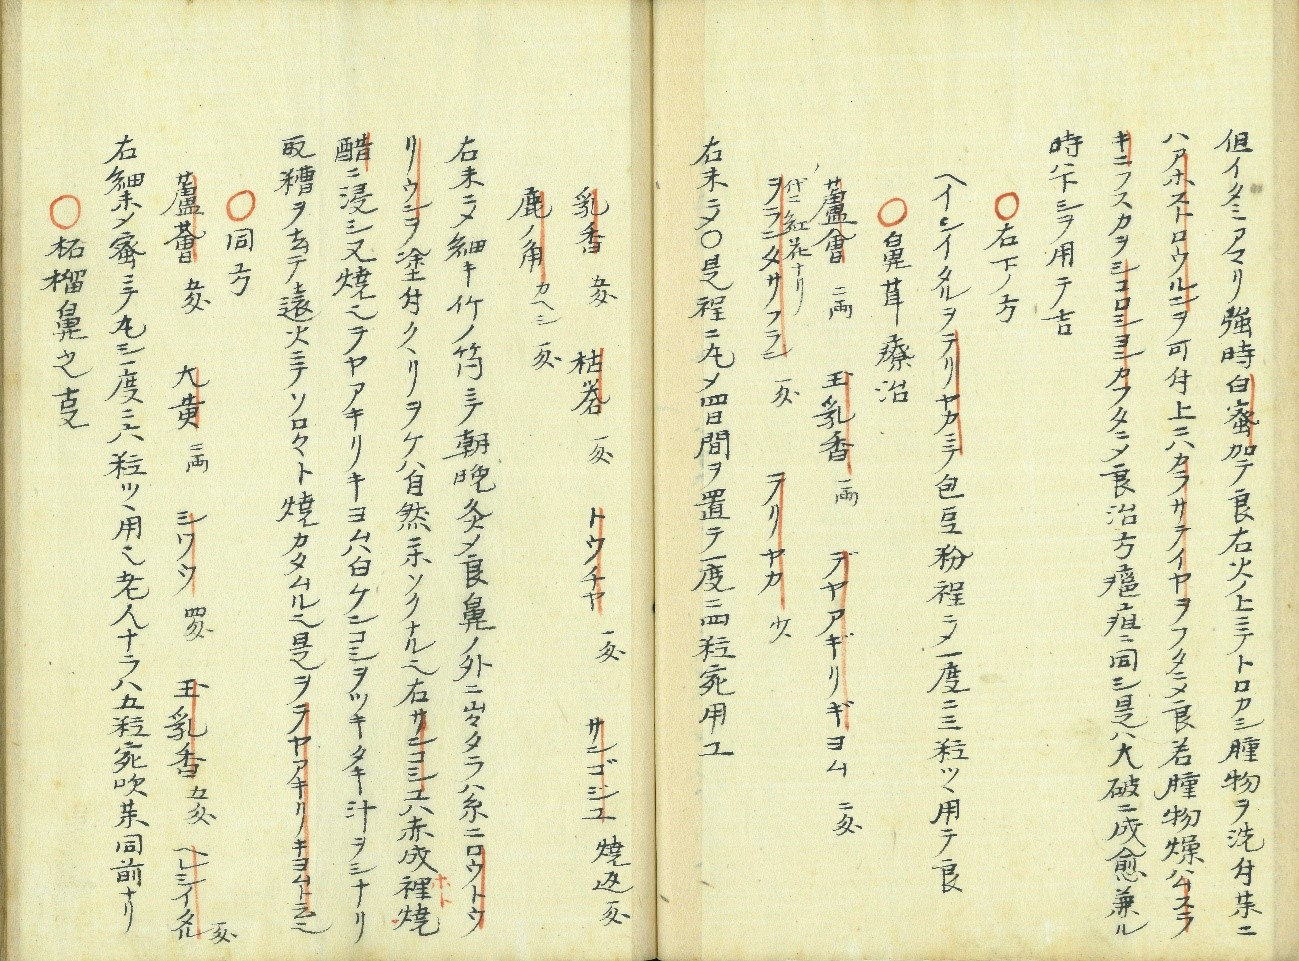 但イタミアマリ強時白蜜加テ良右火ノ上ミテトロカシ腫物ヲ洗付茱ニ
ハアホストロウルニヲ可付上ニハカラサライヤヲフタニメ良若腫物燥ハムスラ
キニフスカヲシコロシヨシカフタニメ良治方癰疽ニ同シ是ハ大破ニ成愈兼ル
時ハ下シヲ用テ吉
〇右下ノ方
ヘイシイタルヲテリヤカミテ包豆粉程ニメ一度ニ三粒ツヽ用テ良
〇鼻茸療治
蘆會 二両 玉乳香 一両 デヤアギリギヨム 二匁
代ニ紅花ナリ
ヲランタサフラン 一匁 テリヤカ 少
右末ニメ〇是程ニ丸メ四日間ヲ置テ一度ニ四粒宛用ユ
乳香 五匁 枯礬 一匁 トウチヤ 一匁 サンゴジユ 焼返 一匁
鹿ノ角 カヘシ 一匁
右末ニメ細キ竹ノ筒ミテ朝晩灸メ良鼻ノ外ニ出タラハ糸ニロウトウ
リウシヲ塗付クヽリヲケハ自然ニ末ソクナル也右サンコシユハ赤成裡焼
醋ニ浸シ又焼也ヲヤアキリキヨムハ白ケンコシヲツキタキ汁ヲシナリ
取糟ヲ去テ遠火ミテソロ々ト焼カタムル也是ヲヲヤアキリノキヨムト云也
〇同方
蘆薈 五匁 大黄 二両 シワウ 四匁 玉乳香 五匁 ヘレシイタル 一匁
右細末メ蜜ミテ丸シ一度ニ六粒ツヽ用也老人ナラハ五粒宛吹茱同前ナリ
〇柘榴鼻之事